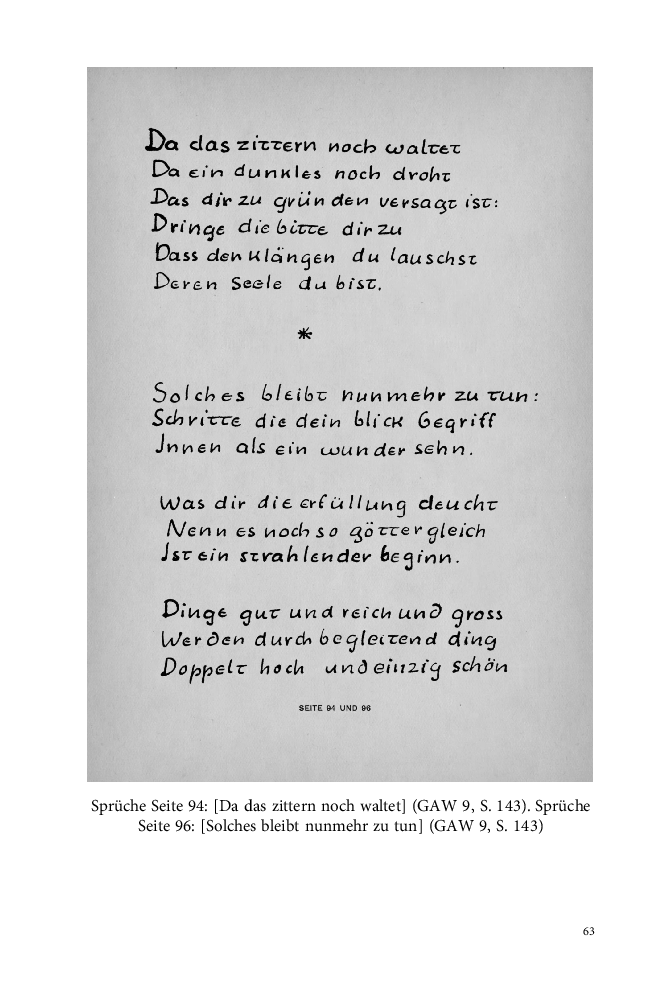 Da das zittern noch waltet
Da ein dunkles noch droht
Das dir zu gründen versagt ist:
Dringe die bitte dir zu
Dass den klängen du lauschst
Deren Seele du bist.
*
Solches bleibt nunmehr zu tun:
Schritte die dein blick begriff
Innen als ein wunder sehn.
Was dir die erfüllung deucht
Nenn es noch so göttergleich
Ist ein strahlender beginn.
Dinge gut und reich und gross
Werden durch begleitend ding
Doppelt hoch und einzig schön
SEITE 94 UND 96
Sprüche Seite 94: [Da das zittern noch waltet] (GAW 9, S. 143). Sprüche
Seite 96: [Solches bleibt nunmehr zu tun] (GAW 9, S. 143)
63